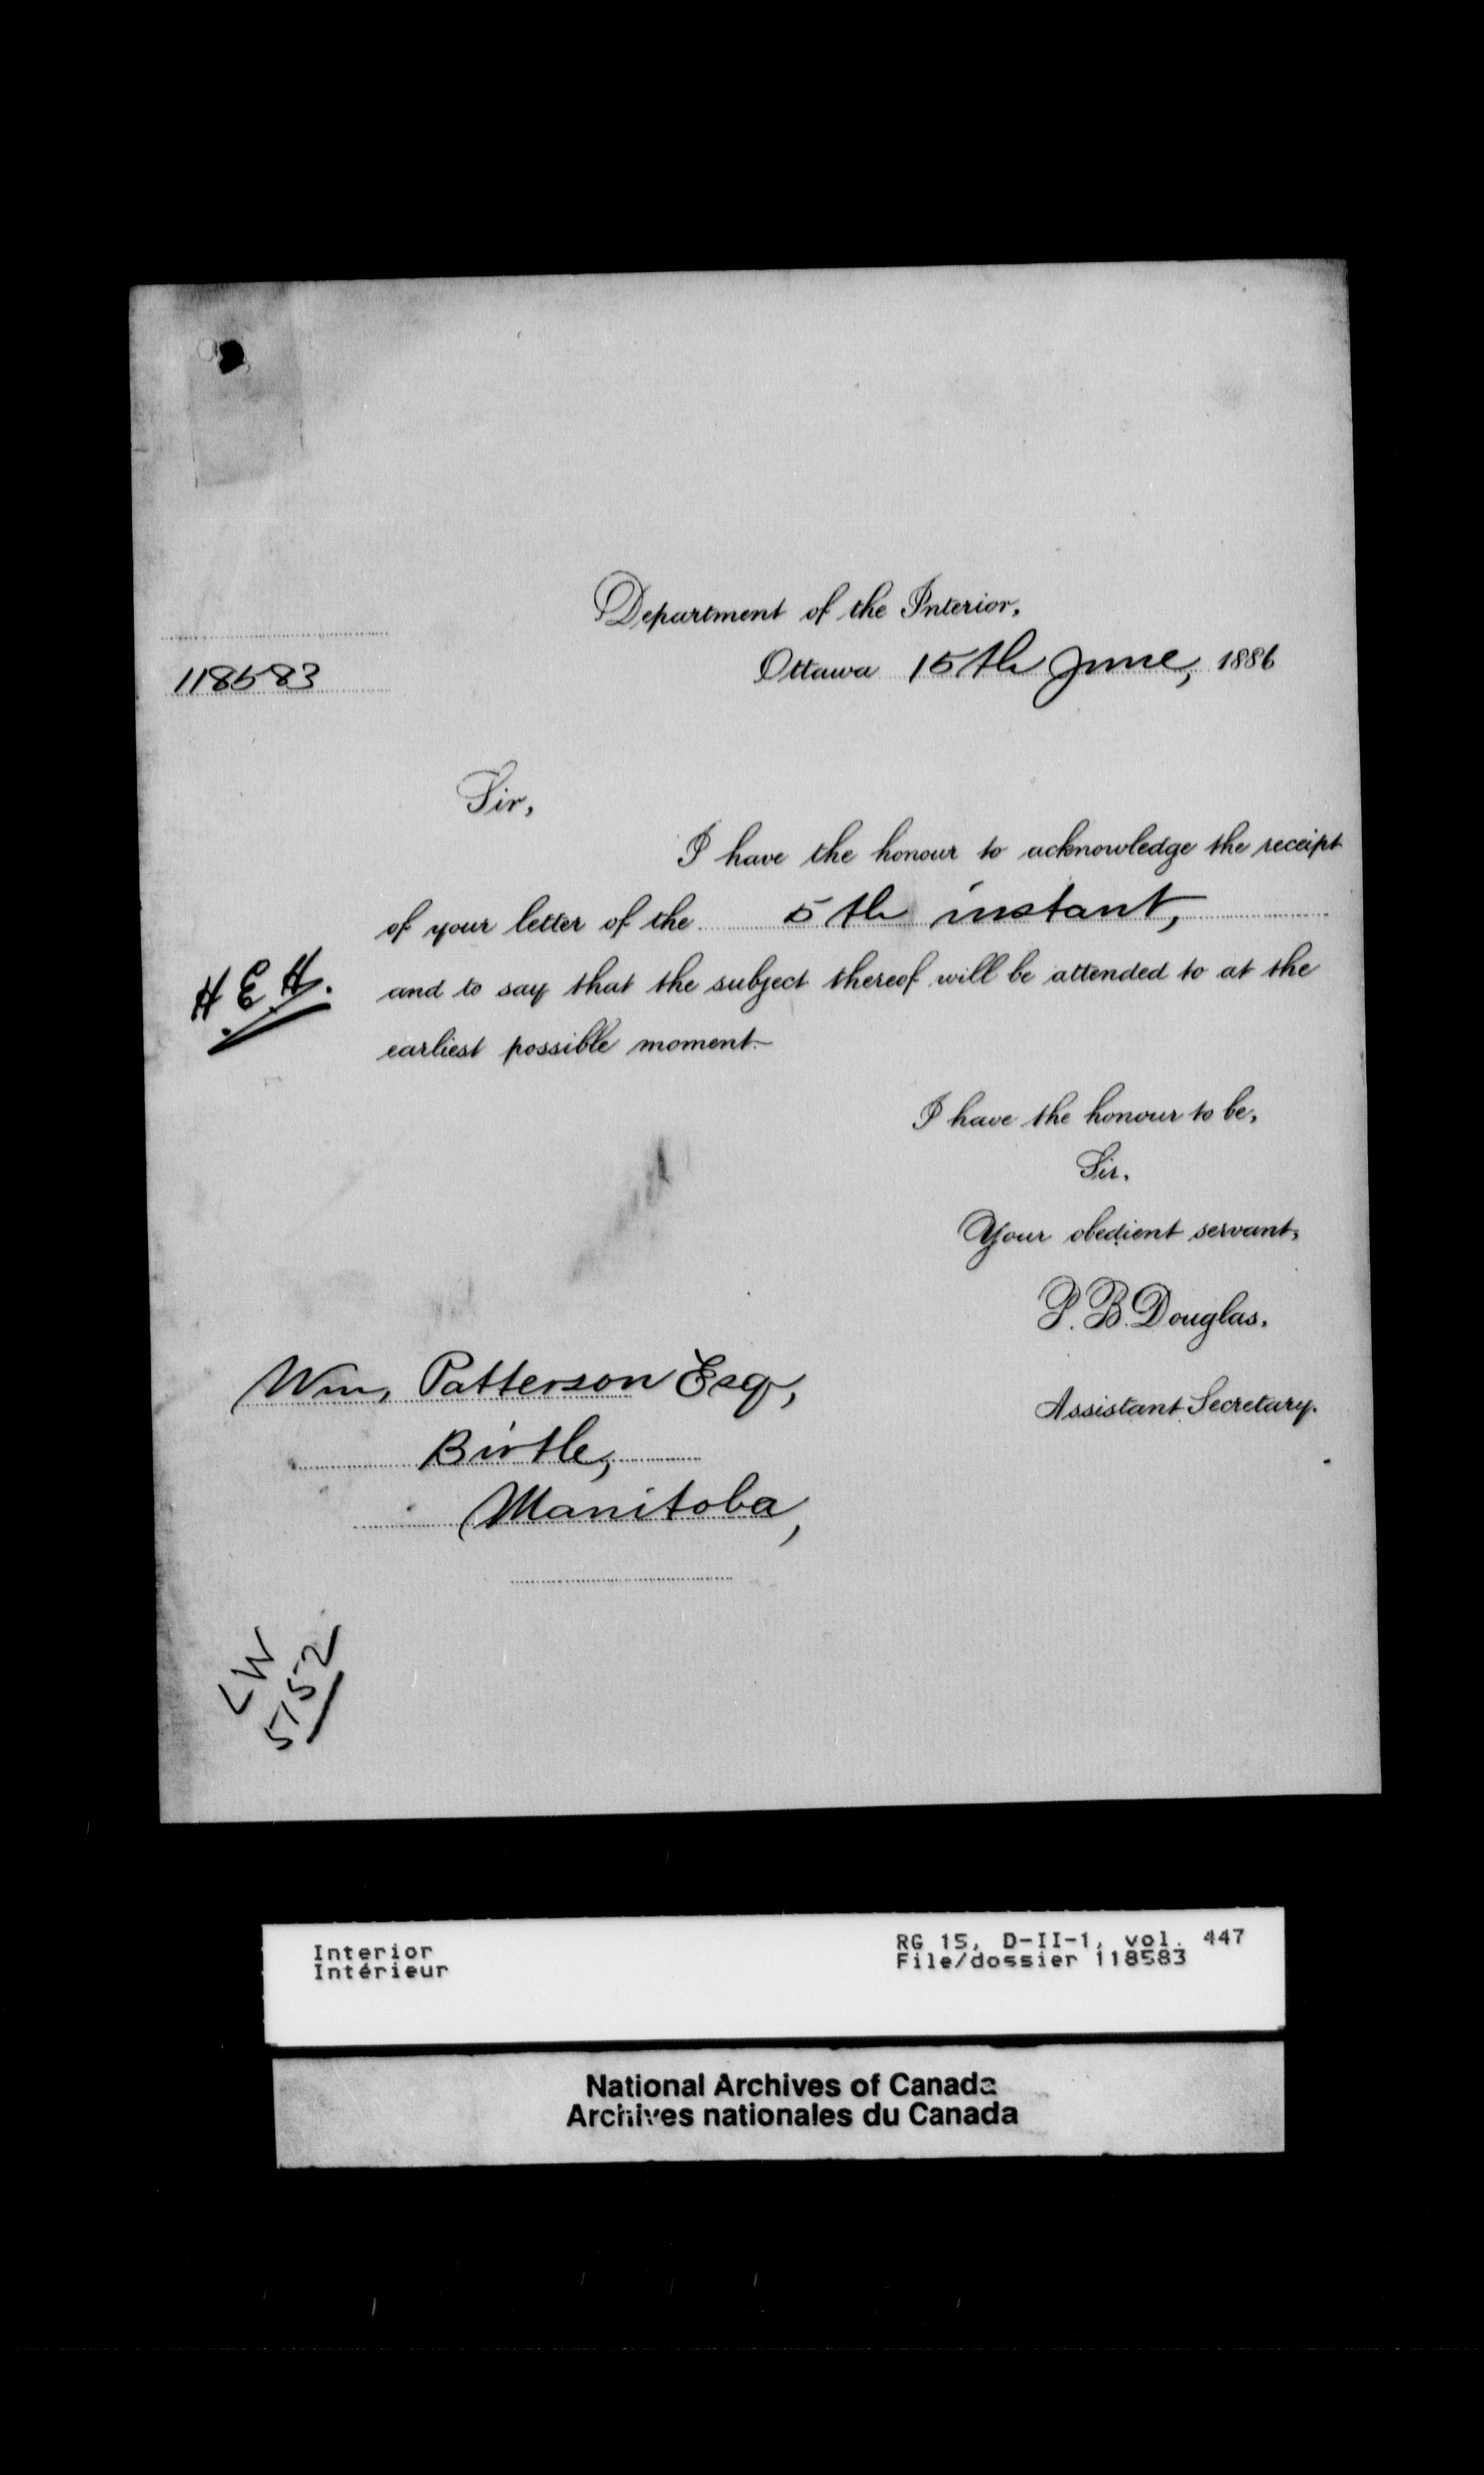 Department of the Interior,
118583
Ottawa 15th June, 1886
Sir,
I have the honour to acknowledge the receipt
of your letter of the 5th instant,
and to say that the subject thereof will be attended to at the
earliest possible moment.
H E H.
I have the honour to be,
Sir,
Your obedient servant,
P. B. Douglas.
Assistant Secretary.
Wm, Patterson Esq,
Birtle,
Manitoba,
LW
5152
Interior
Intérieur
RG 15, D-II-1, vol. 447
File/dossier 118583
National Archives of Canada
Archives nationales du Canada